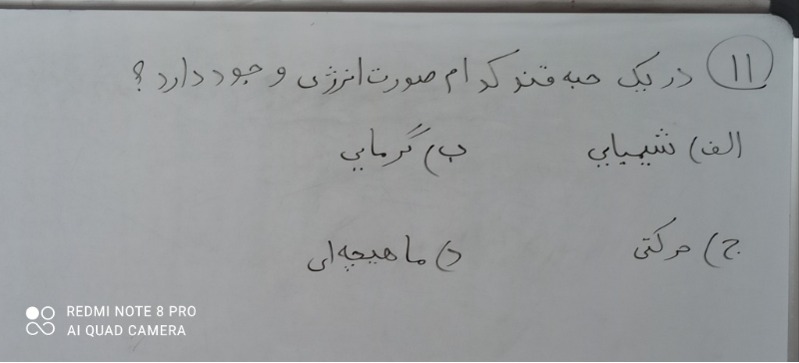 ۱۱ در یک حبه قند کدام صورت انرژی وجود دارد؟
الف) شیمیایی ب) گرمایی
ج) حرکتی د) ماهیچه‌ای
REDMI NOTE 8 PRO
AI QUAD CAMERA